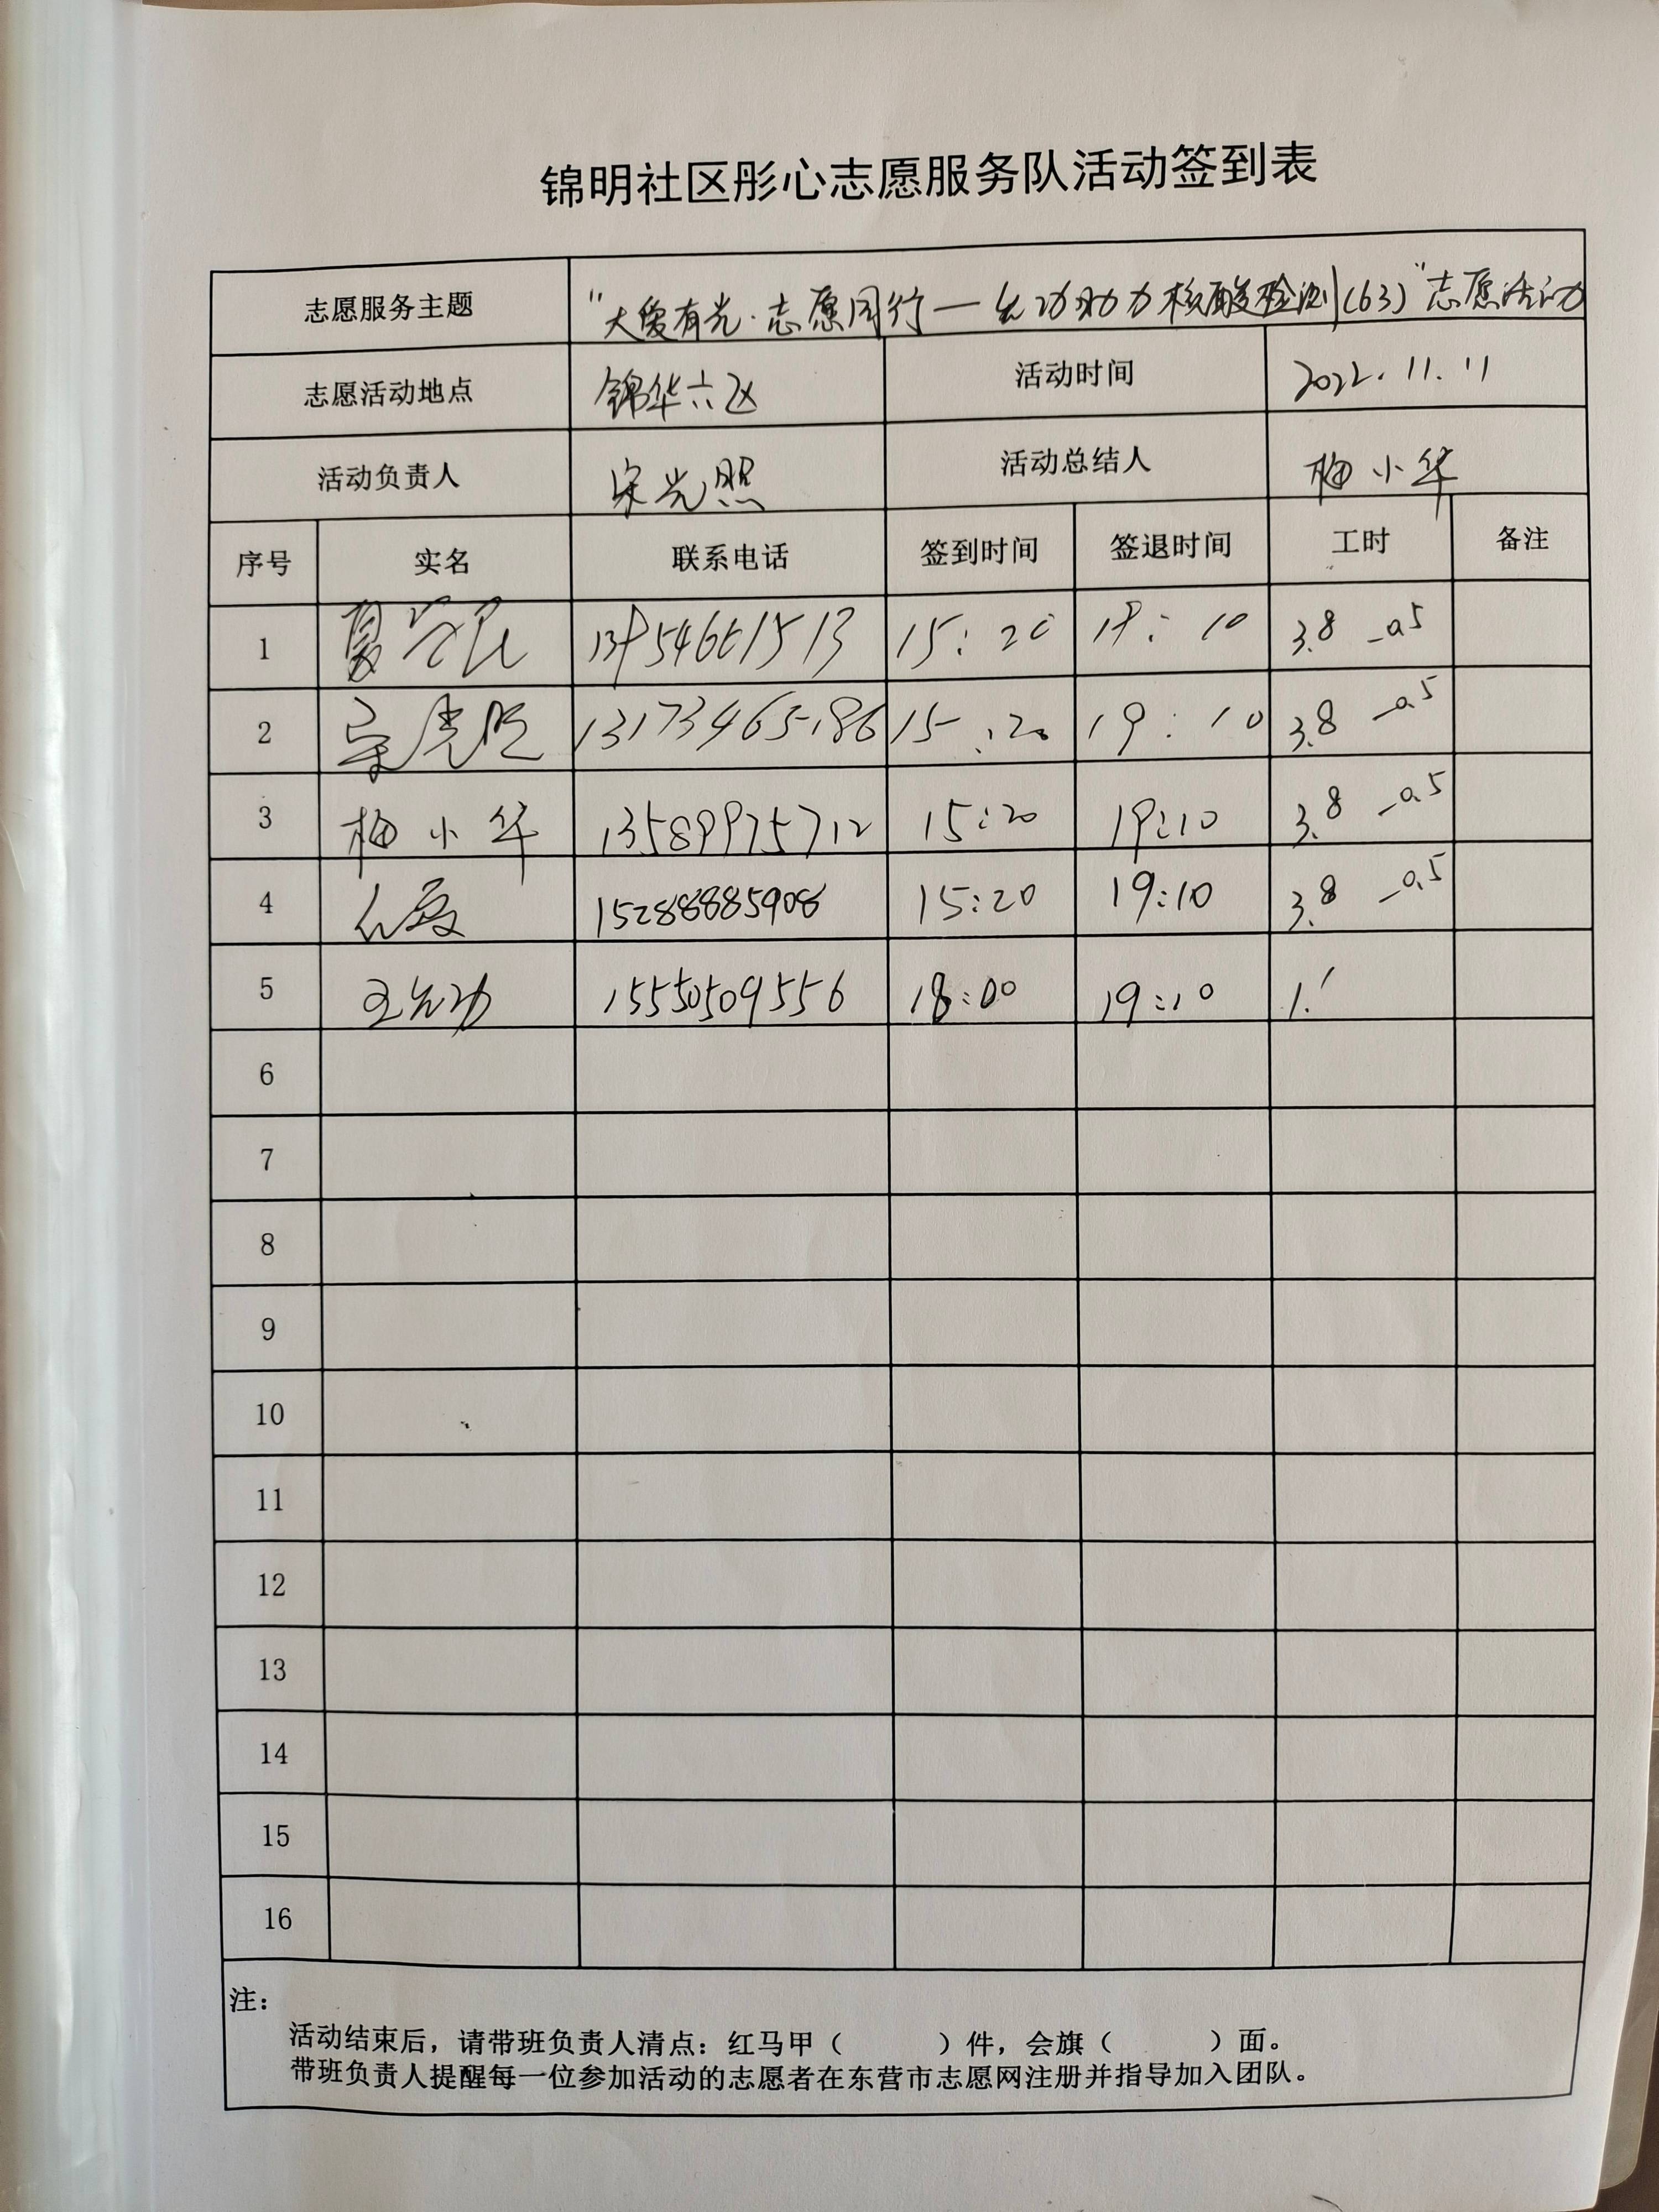 锦明社区彤心志愿服务队活动签到表
志愿服务主题 "大爱有光·志愿同行— 助力核酸检测(63)"志愿活动
志愿活动地点 锦华六区 活动时间 2022.11.11
活动负责人 宋光照 活动总结人 梅小华
序号 实名 联系电话 签到时间 签退时间 工时 备注
1 15:20 19:10 3.8 -0.5
2 宋光照 13173465186 15:20 19:10 3.8 -0.5
3 梅小华 13589975712 15:20 19:10 3.8 -0.5
4 15288885908 15:20 19:10 3.8 -0.5
5 15550509556 18:00 19:10 1.1
6
7
8
9
10
11
12
13
14
15
16
注:
活动结束后,请带班负责人清点:红马甲( )件,会旗( )面。
带班负责人提醒每一位参加活动的志愿者在东营市志愿网注册并指导加入团队。